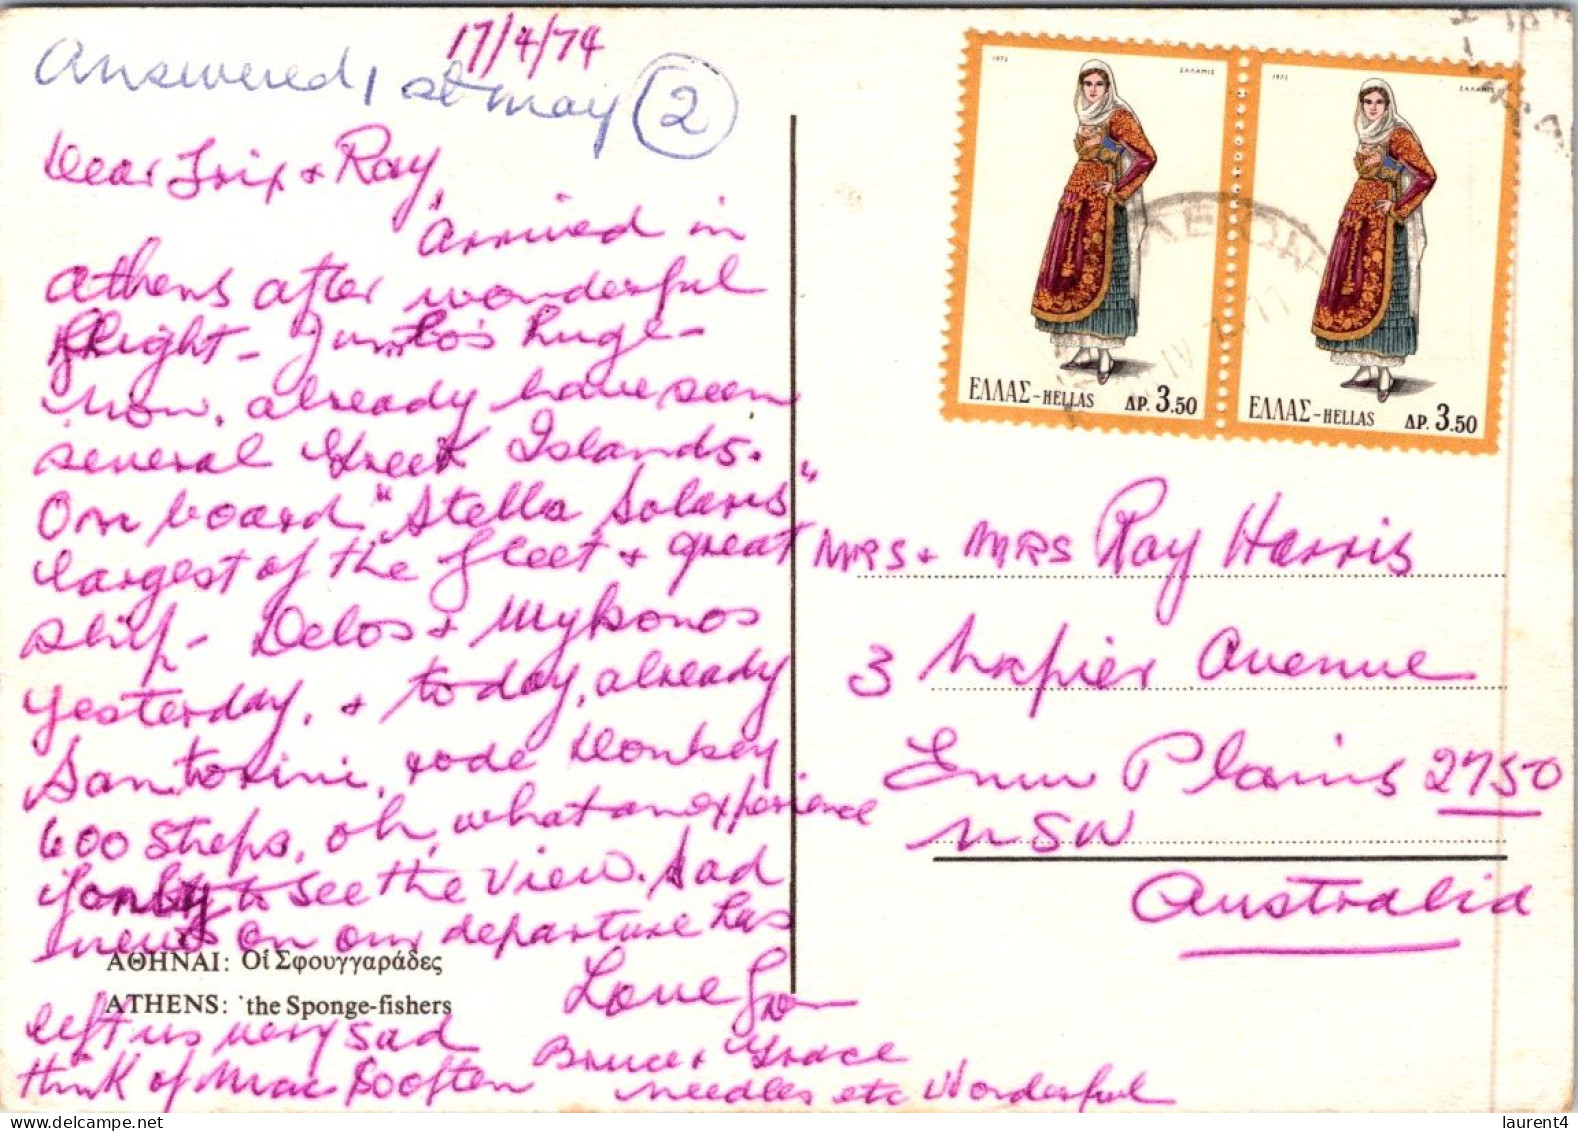 17/4/74
Answered 1st May 2
Dear Trix & Ray,
Arrived in
Athens after wonderful
flight - Jumbo's huge -
Now, already have seen
several Greek Islands.
On board "Stella Solaris"
largest of the fleet & great
ship - Delos & Mykonos
yesterday, & today, already
Santorini, rode Donkey
600 steps, oh, what an experience
only to see the view. Sad
news on our departure has
left us very sad
think of Mac so often
Love from
Bruce & Grace
needles etc Wonderful
ΑΘΗΝΑΙ: Οἱ Σφουγγαράδες
ATHENS: 'the Sponge-fishers
1972 ΣΑΛΑΜΙΣ
ΕΛΛΑΣ-HELLAS ΔΡ. 3.50
1972 ΣΑΛΑΜΙΣ
ΕΛΛΑΣ-HELLAS ΔΡ. 3.50
MRS & MRS Ray Harris
3 Napier Avenue
Emu Plains 2750
NSW
Australia
laurent4